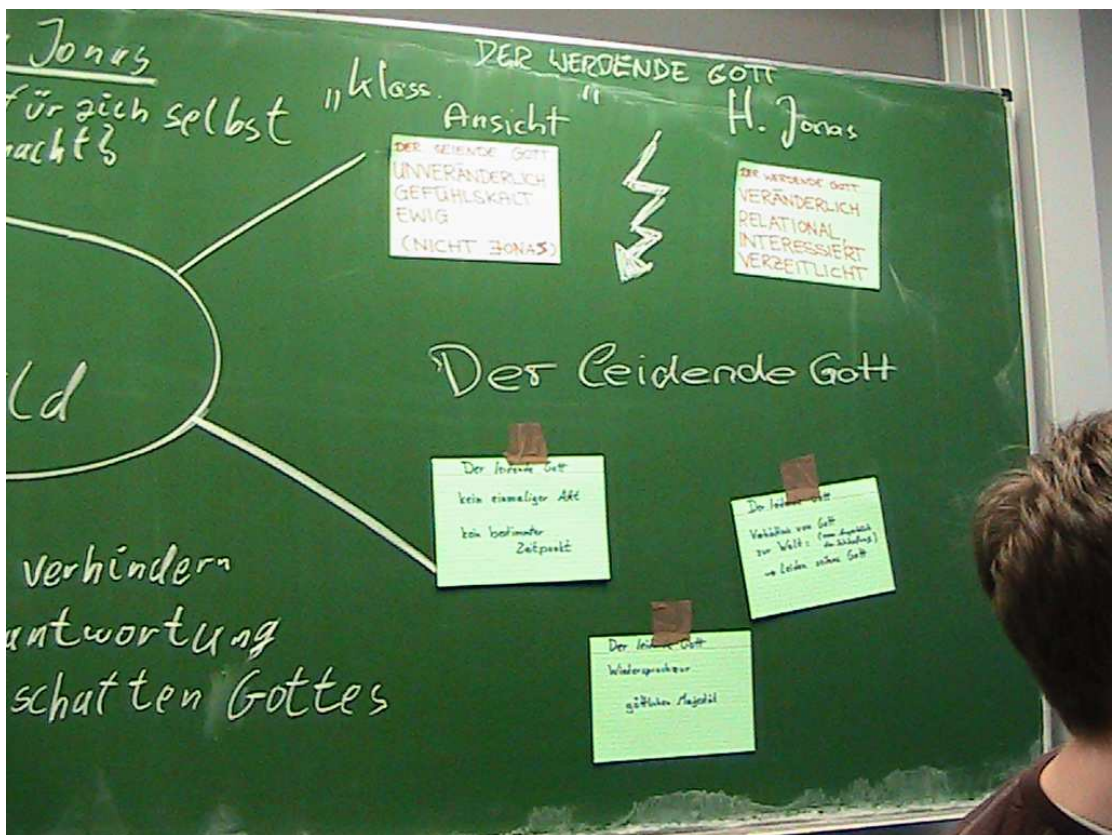 Jonas
für sich selbst
macht?
DER WERDENDE GOTT
"klass. "
Ansicht
H. Jonas
DER SEIENDE GOTT
UNVERÄNDERLICH
GEFÜHLSKALT
EWIG
(NICHT JONAS)
DER WERDENDE GOTT
VERÄNDERLICH
RELATIONAL,
INTERESSIERT
VERZEITLICHT
ld
Der leidende Gott
Der leidende Gott
kein einmaliger Akt
kein bestimmter
Zeitpunkt
Der leidende Gott
Verhältnis von Gott
zur Welt: (vom Augenblick
der Schöpfung)
→ Leiden seitens Gott
Der leidende Gott
Wiederspruch zur
göttlichen Majestät
verhindern
antwortung
schatten Gottes